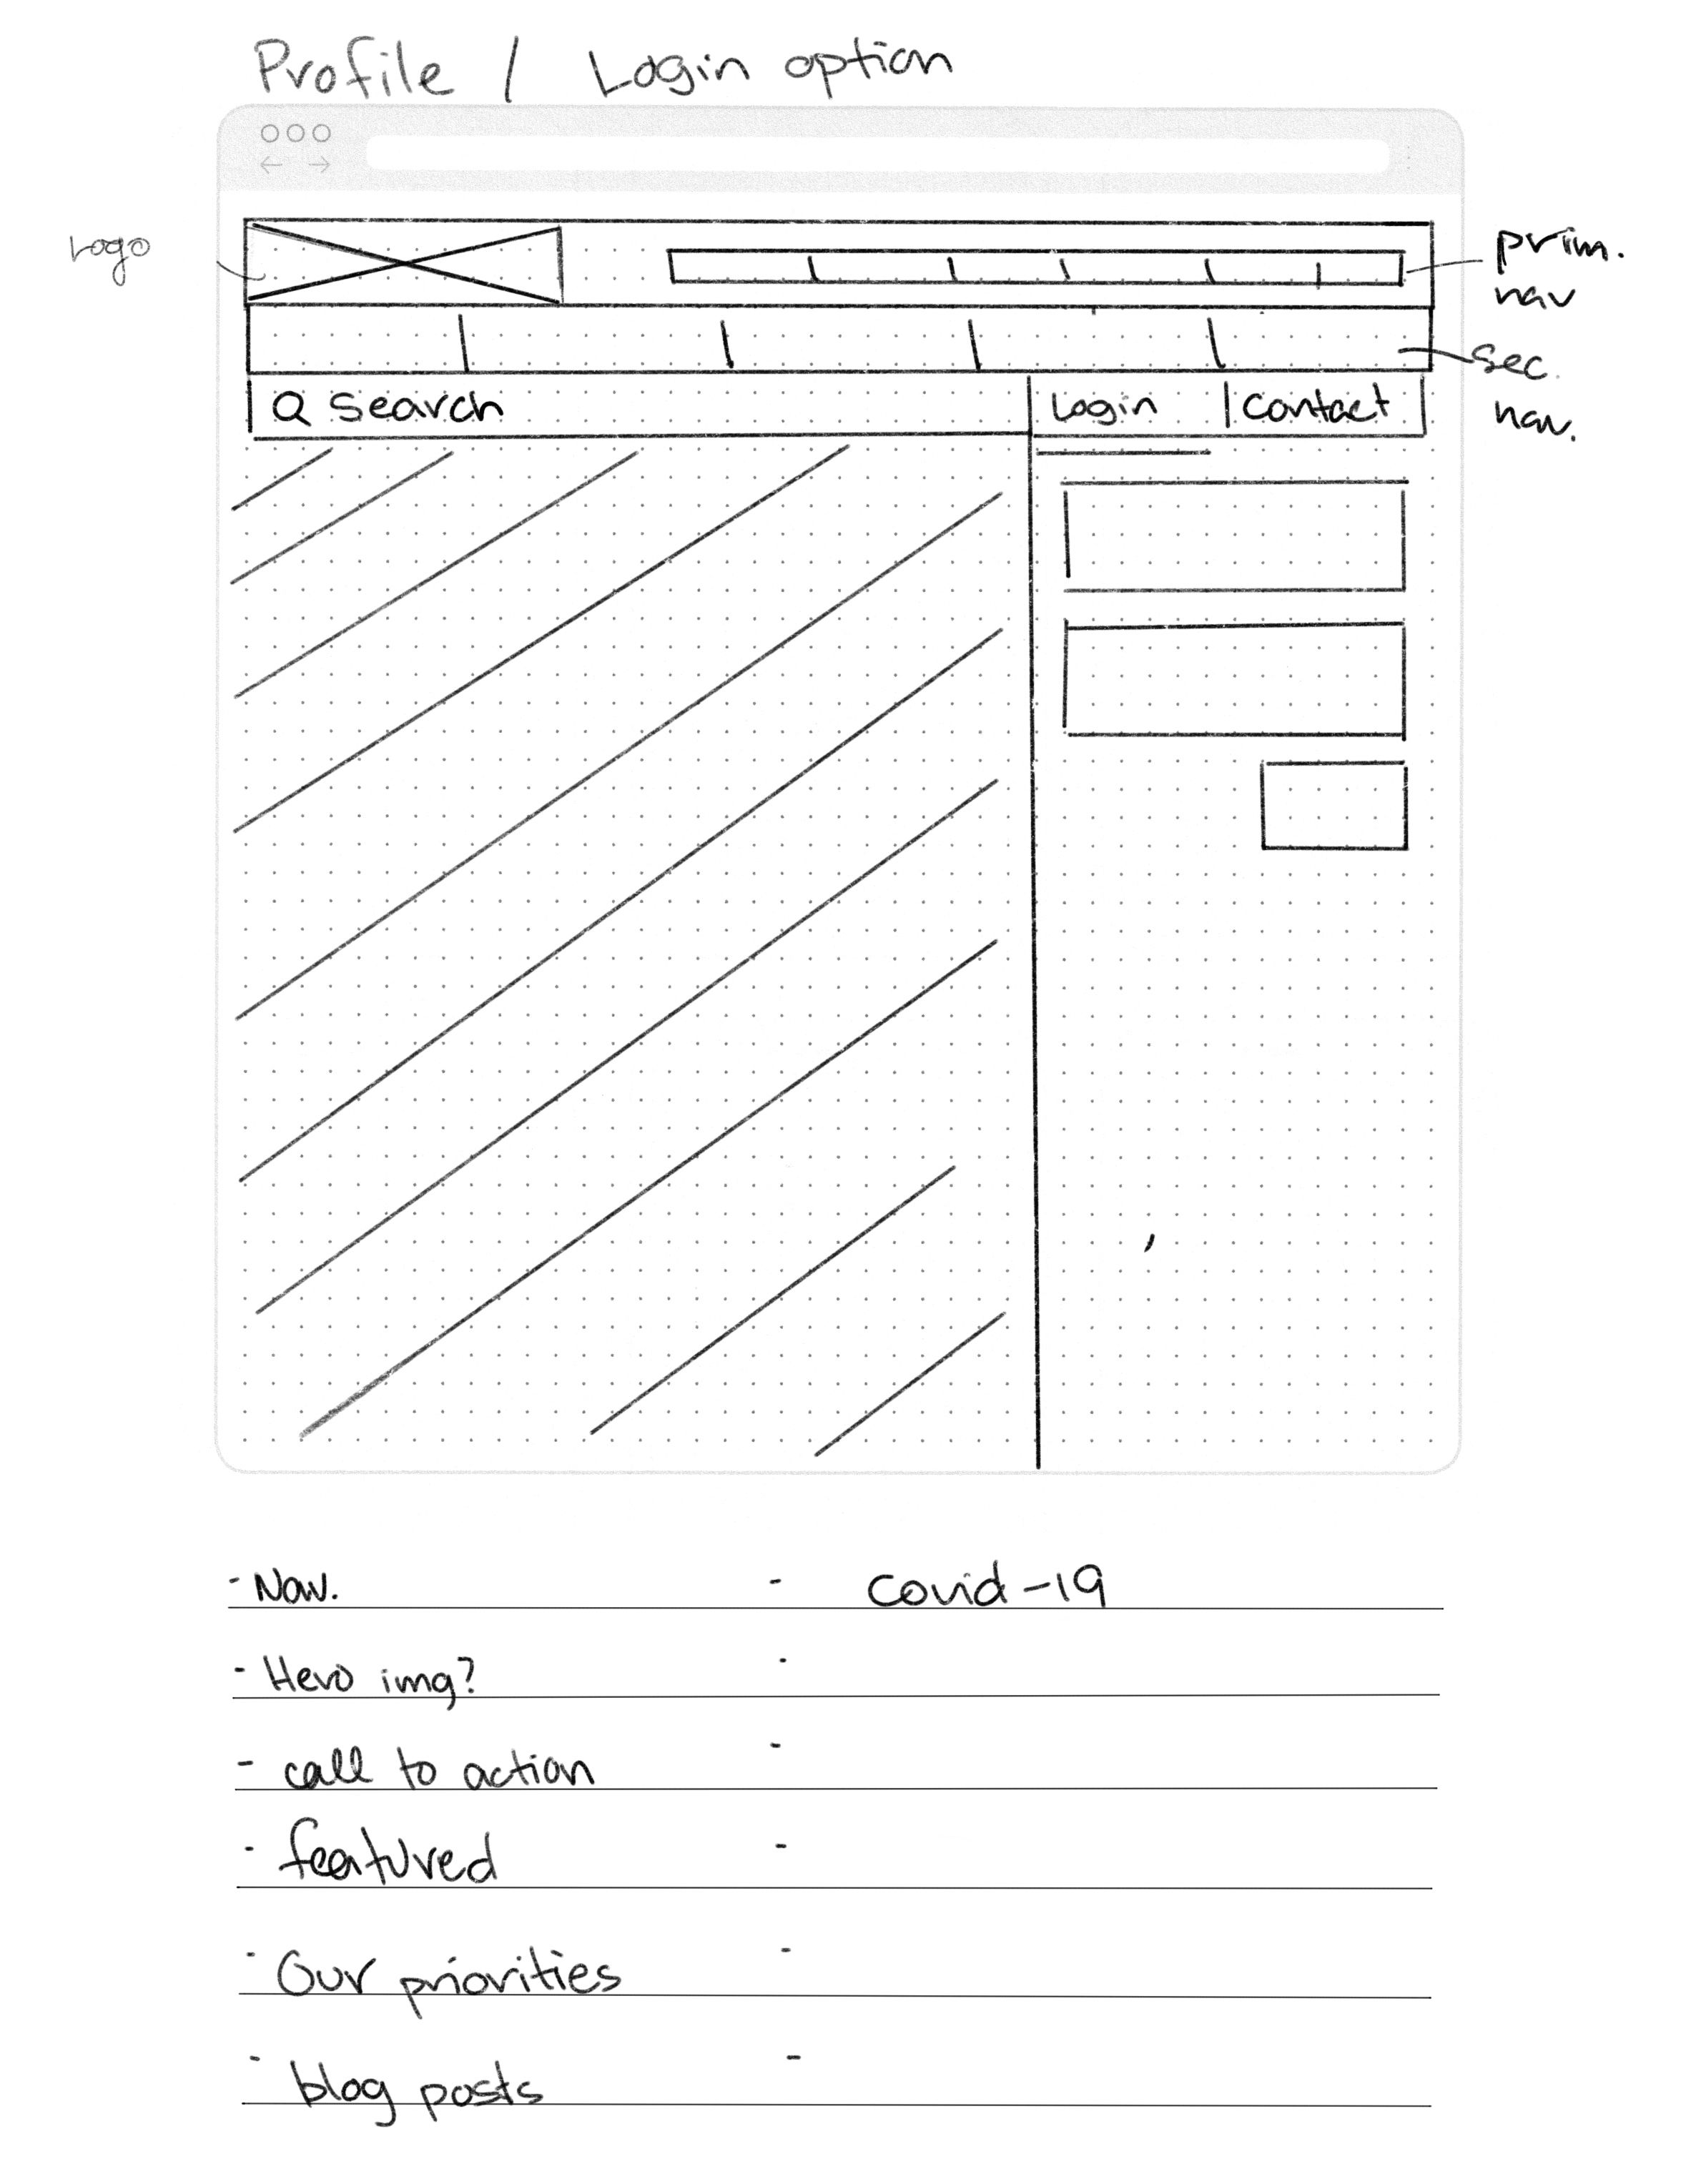 Profile / Login option
Logo
prim.
nav
sec.
nav.
Search
Login
Contact
- Nav.
- Covid-19
- Hero img?
-
- call to action
-
- featured
-
- Our priorities
-
- blog posts
-